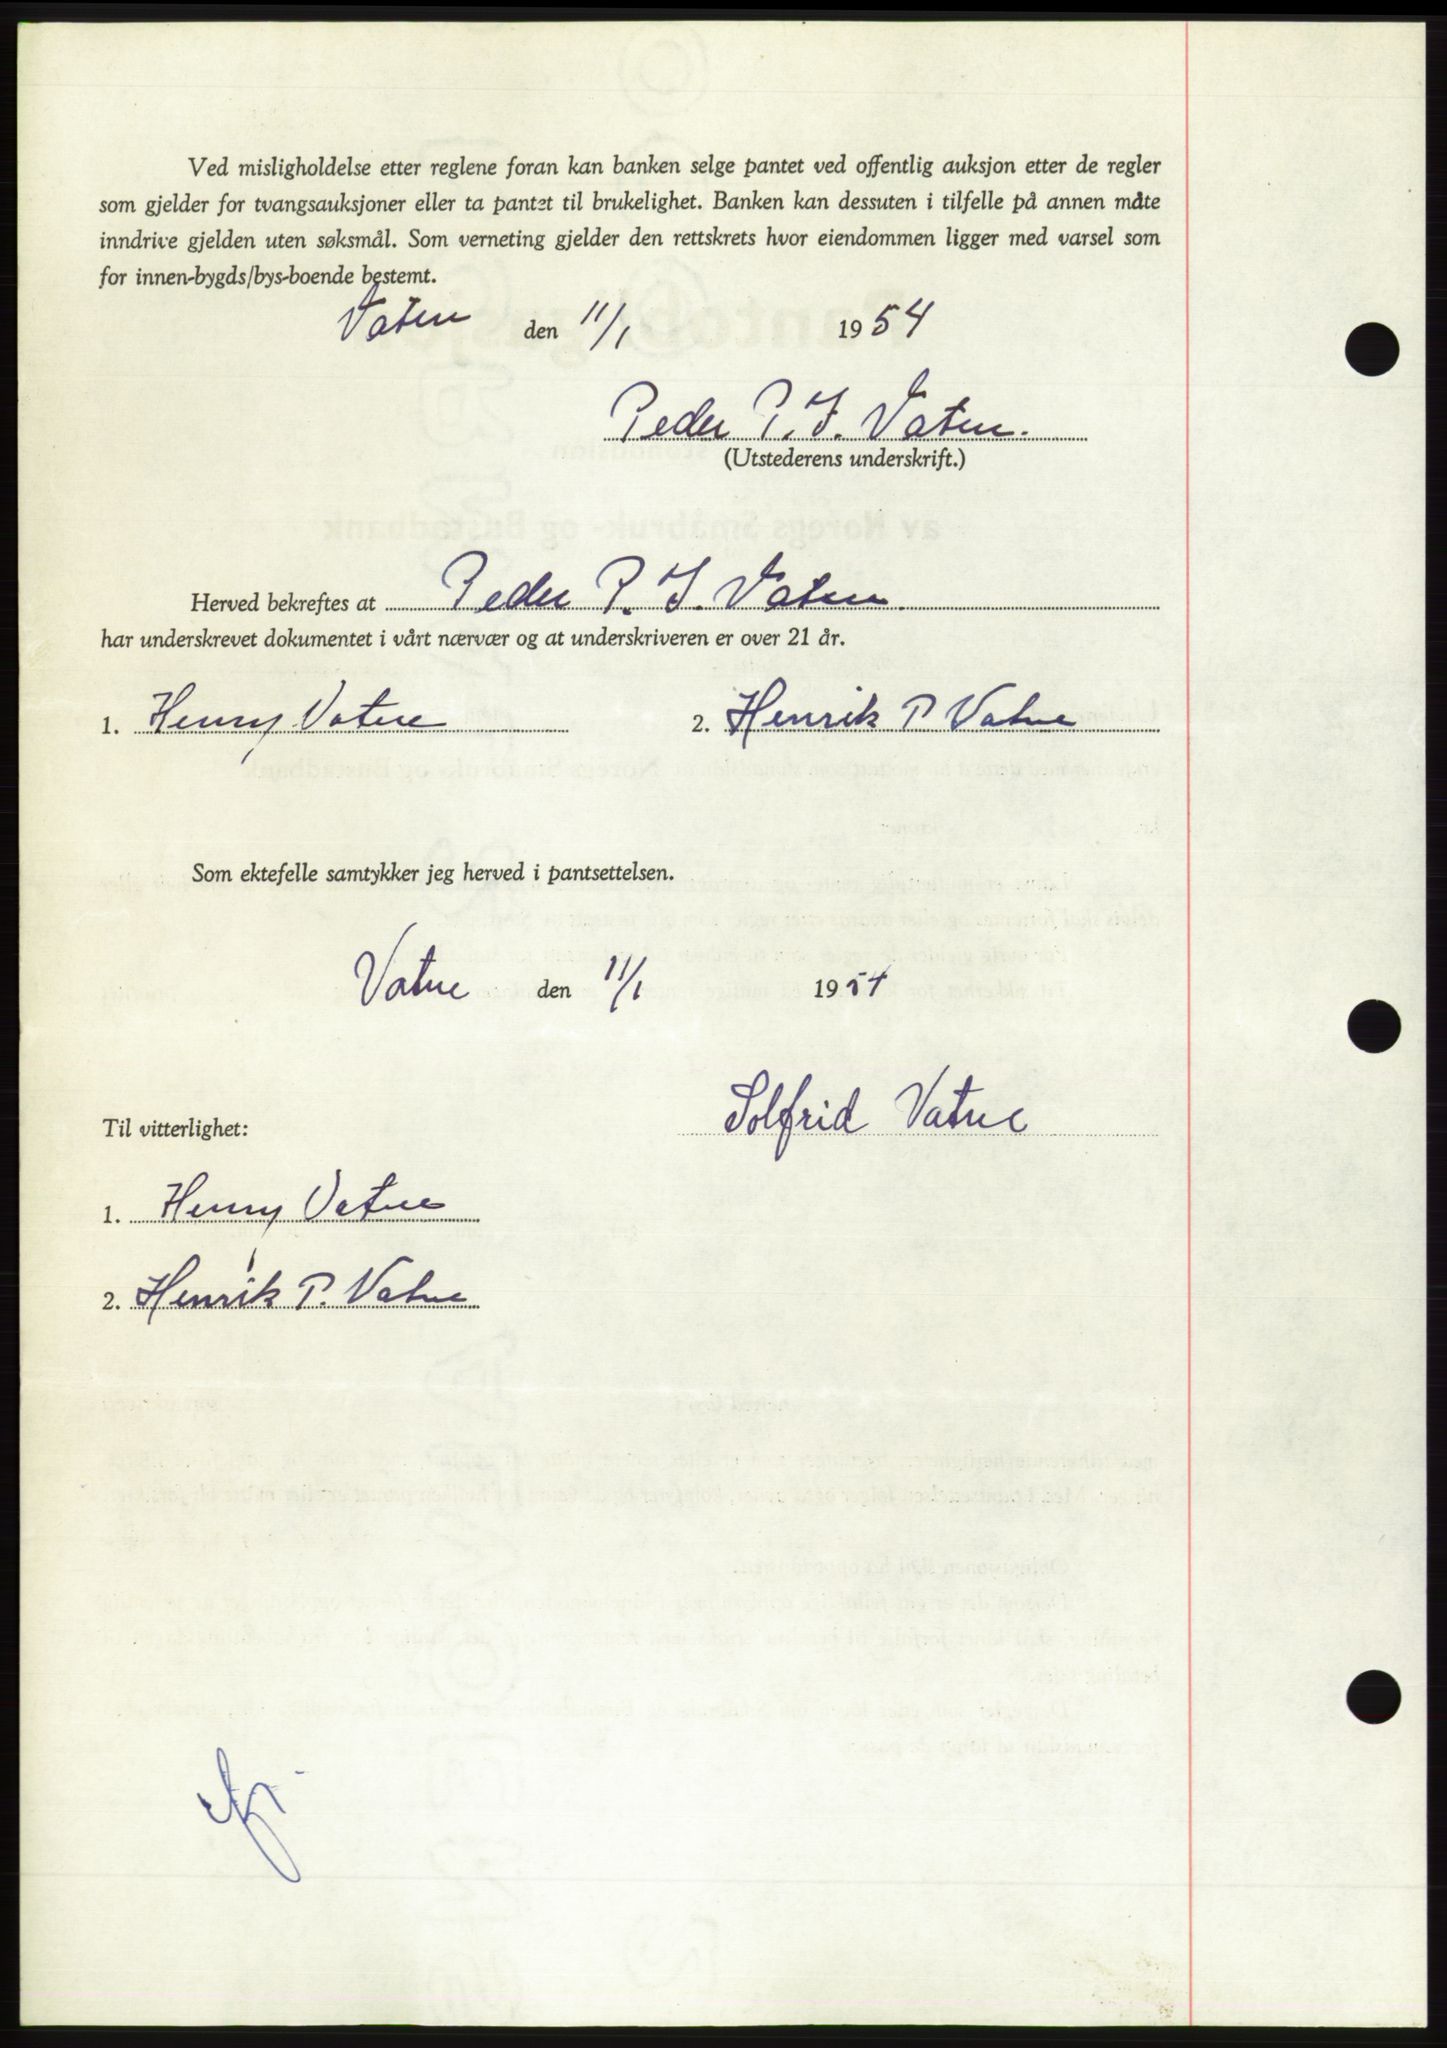 Ved misligholdelse etter reglene foran kan banken selge pantet ved offentlig auksjon etter de regler
som gjelder for tvangsauksjoner eller ta pantet til brukelighet. Banken kan dessuten i tilfelle på annen måte
inndrive gjelden uten søksmål. Som verneting gjelder den rettskrets hvor eiendommen ligger med varsel som
for innen-bygds/bys-boende bestemt.
Vatne den 11/1 1954
Peder P. I. Vatne.
(Utstederens underskrift.)
Herved bekreftes at Peder P. I. Vatne.
har underskrevet dokumentet i vårt nærvær og at underskriveren er over 21 år.
1. Henry Vatne 2. Henrik P Vatne
Som ektefelle samtykker jeg herved i pantsettelsen.
Vatne den 11/1 1954
Solfrid Vatne
Til vitterlighet:
1. Henry Vatne
2. Henrik P. Vatne